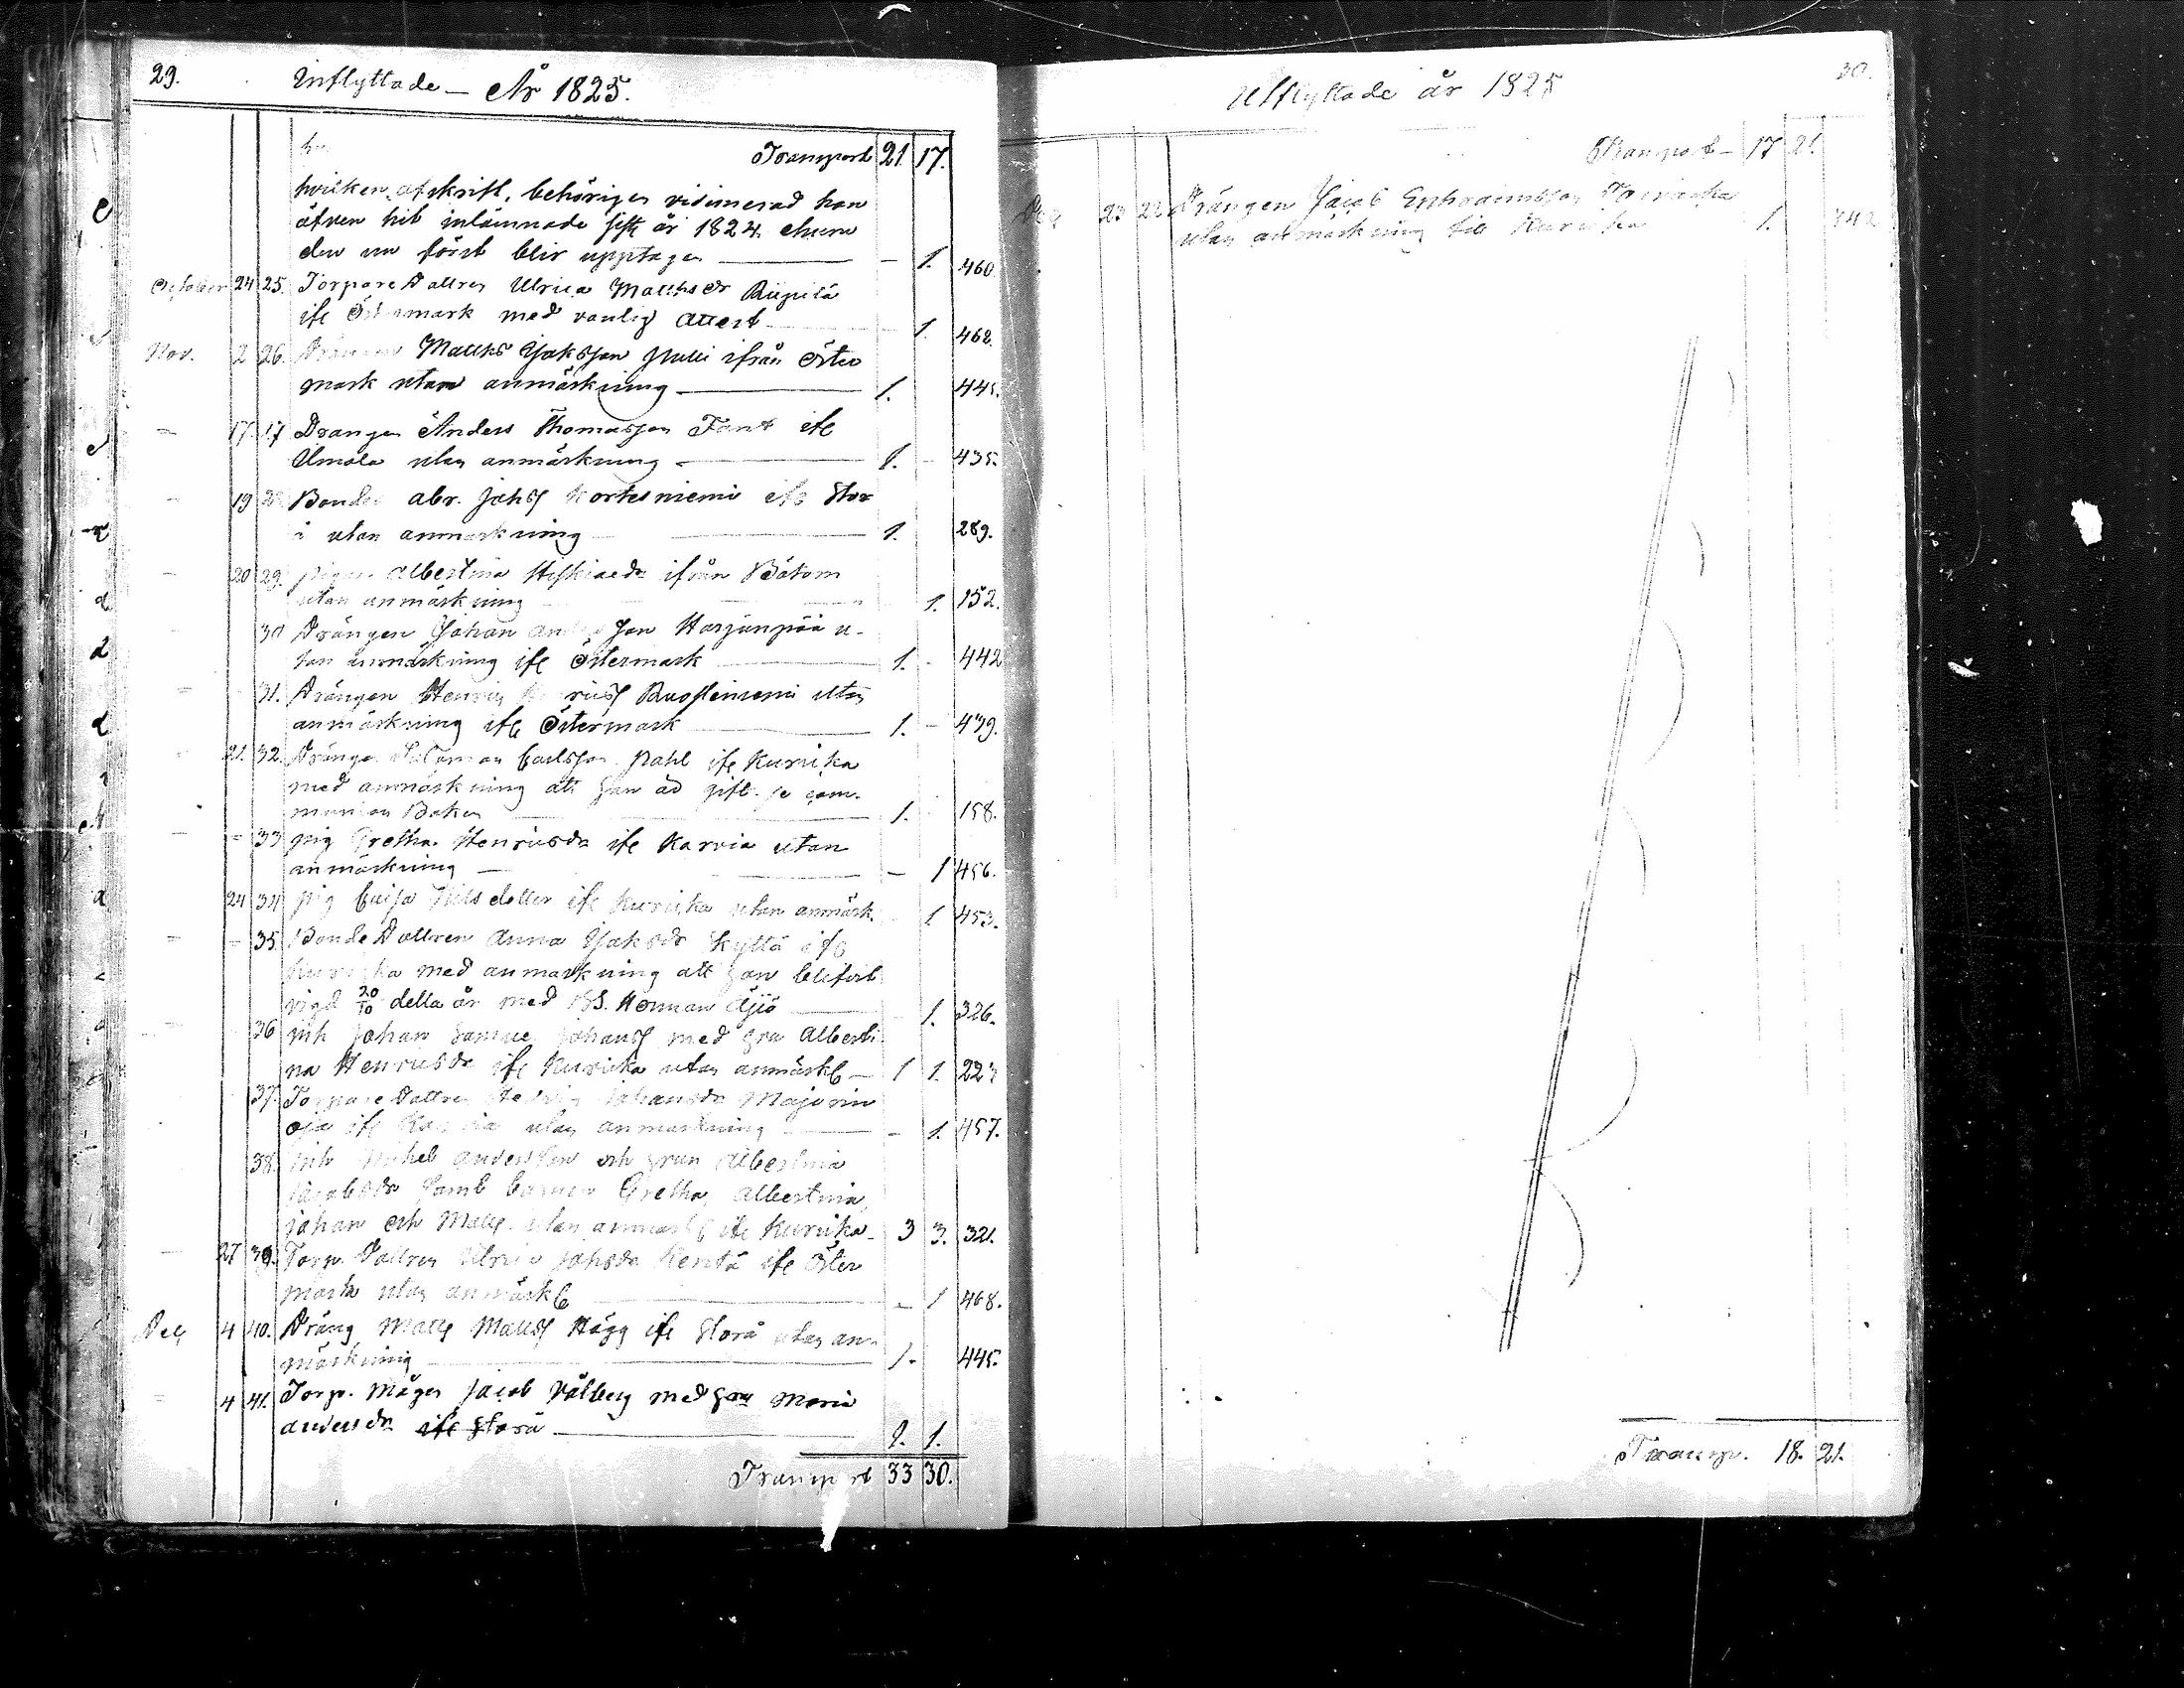 29. Inflyttade — År 1825.
Transport 21 17.
hvilken afskrift, behörigen vidimerad han
äfven hit inlämnade sistl. år 1824. ehuru
den nu först blir upptagen — 1. 460.
October 24 25. Torpare Dottren Ulrica Matthsdr
ifr Östermark med vanlig attest 1. 468.
Nov. 2 26. Drängen Matths Jaksson ifrån Öster
mark utan anmärkning 1. 445.
17 17 Drängen Anders Thomasson ifr
Ilmola utan anmärkning 1. 435.
19 28 Bonde abr. Kortesniemi ifr Stor
å utan anmärkning 1. 289.
20 29. pigan Albertina ifrån Bötom
utan anmärkning 1. 152.
30 Drängen Johan Andersson Harjunpää u-
tan anmärkning ifr Östermark 1. 442
31. Drängen Henric utan
anmärkning ifr Östermark 1. 439.
21. 32. Dränge Salomon Carlsson ifr Kurikka
med anmärkning att han
1. 158.
33 pig Gretha Henricsdr ifr Karvia utan
anmärkning — 1 456.
24 34 pig Caisa Nilsdotter ifr Kurikka utan anmärk. 1 453.
35. Bonde Dottren Anna Jaksdr Kyttä ifr
Kurikka med anmärkning att hon blifvit
vigd 20/10 detta år med Herman Äijö 1. 326.
36 inh Johan Johans med hru Alberti-
na Henricsdr ifr Kurikka utan anmärk 1 1. 223
37. Torpare Dottren Johansdr
oja ifr Karvia utan anmärkning — 1. 457.
38. inh Michel Andersson och hrun Albertina
Jacobsdr samt barnen Gretha, Albertina,
Johan och Matts utan anmärk ifr Kurikka 3 3. 321.
27 39. Torp. Dottren Ulrica Kentä ifr Öster
mark utan anmärk — 1 468.
Dec 4 40. Dräng Matts Hägg ifr Storå utan an-
märkning 1. 445.
4 41. Torp. Mågen Jacob med hru Maria
Andersdr ifr Storå 1. 1.
Transport 33 30.
Utflyttade år 1825 30.
Transport 17 21.
Dec 23 22 Drängen Jacob Ephraimsson
utan anmärkning till Kurikka 1. 342
Transp. 18. 21.